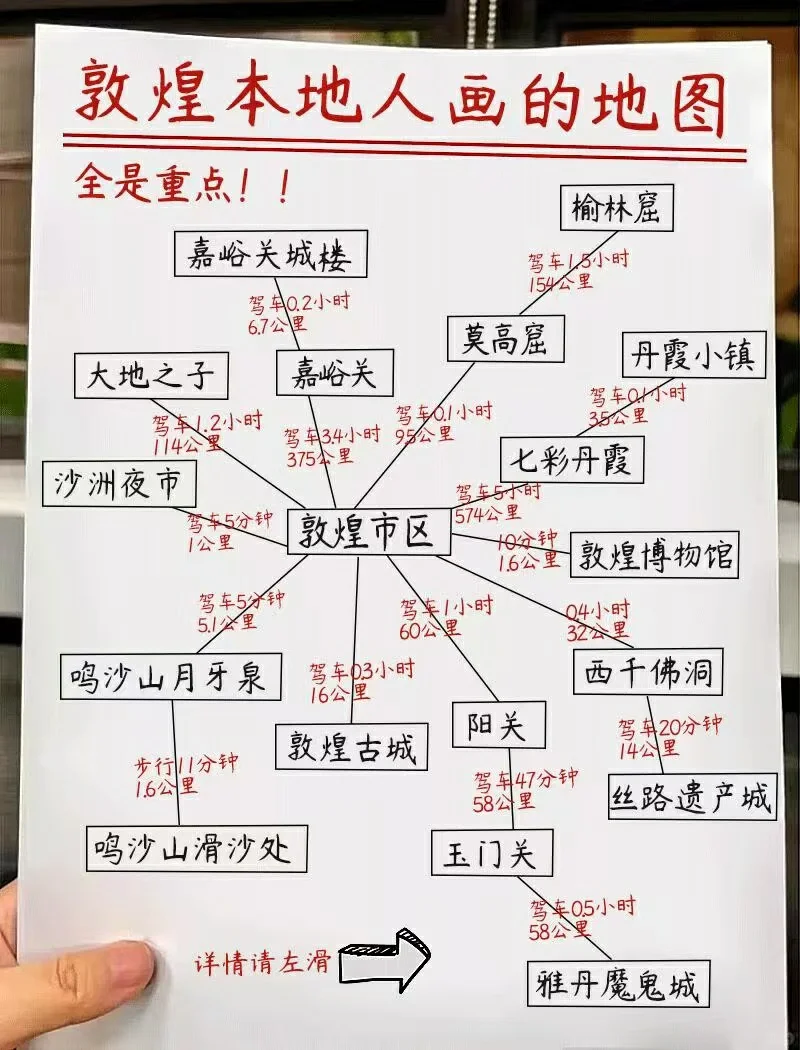 敦煌本地人画的地图
全是重点！！
榆林窟
嘉峪关城楼
驾车1.5小时
154公里
驾车0.2小时
6.7公里
莫高窟
丹霞小镇
大地之子
嘉峪关
驾车0.1小时
35公里
驾车1.2小时
114公里
驾车3.4小时
375公里
驾车0.1小时
95公里
七彩丹霞
沙洲夜市
驾车5小时
574公里
驾车5分钟
1公里
敦煌市区
10分钟
1.6公里
敦煌博物馆
驾车5分钟
5.1公里
驾车1小时
60公里
04小时
32公里
鸣沙山月牙泉
驾车03小时
16公里
西千佛洞
敦煌古城
阳关
驾车20分钟
14公里
步行11分钟
1.6公里
驾车47分钟
58公里
丝路遗产城
鸣沙山滑沙处
玉门关
驾车05小时
58公里
详情请左滑
雅丹魔鬼城